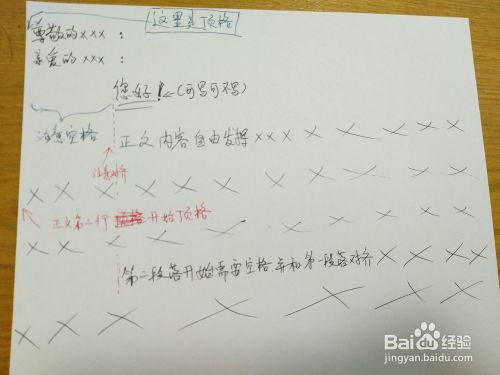 这里是顶格
尊敬的×××：
亲爱的×××：
您好！←(可写可不写)
注意空格
正文内容自由发挥×××××××
注意对齐
×××××××××
正文第二行开始顶格
×××××××××
第二段落开始需要空格并和第一段落对齐××××
××××××××
Bai du 经验
jingyan.baidu.com